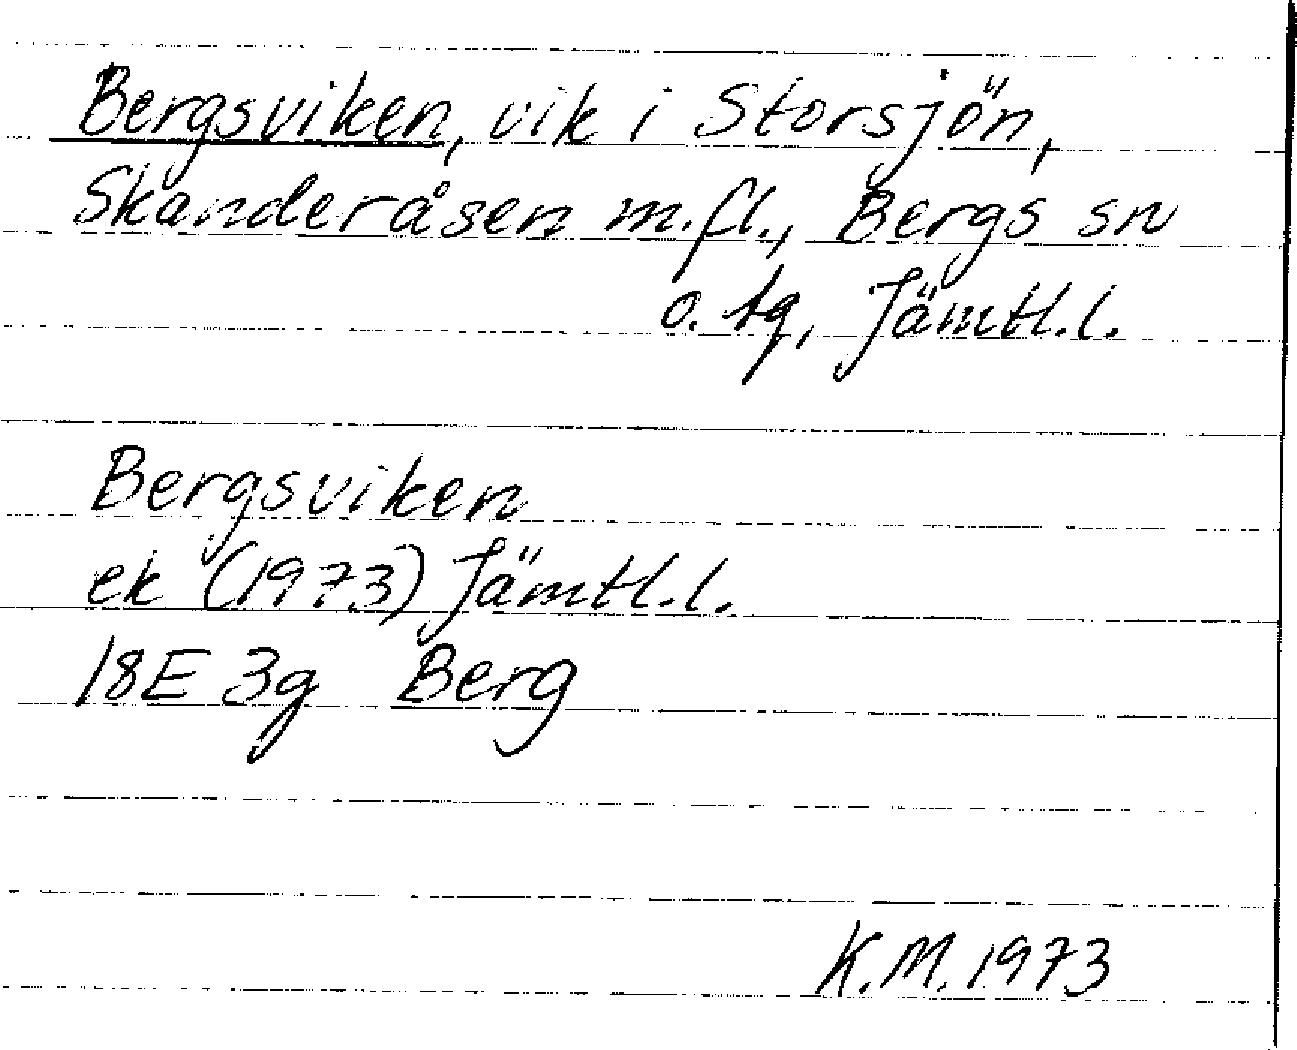 Bergsviken, vik i Storsjön,
Skanderåsen m.fl., Bergs sn
o. tg, Jämtl.l.
Bergsviken
ek (1973) Jämtl.l.
18E 3g Berg
K.M. 1973